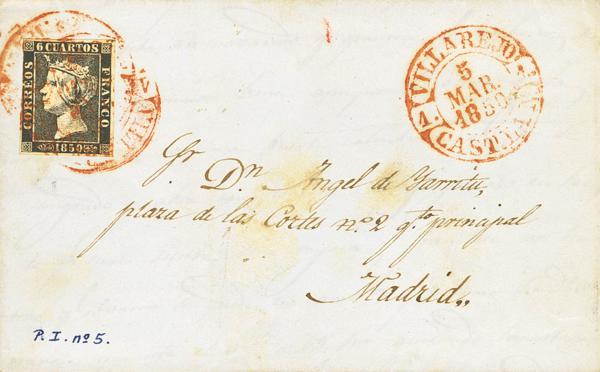 6 CUARTOS
CORREOS
FRANCO
1850
VILLAREJO
5
MAR.
1850
1.
CAST.LA
Sr Dn. Angel de Garritu,
plaza de las Cortes nº. 2 qto principal
Madrid,,
P. I. nº 5.